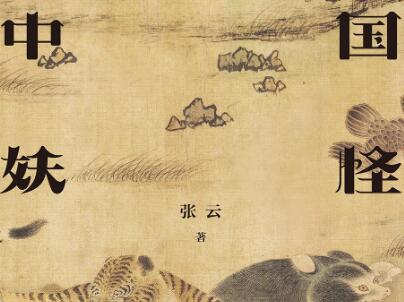 中国
妖怪
张云
著